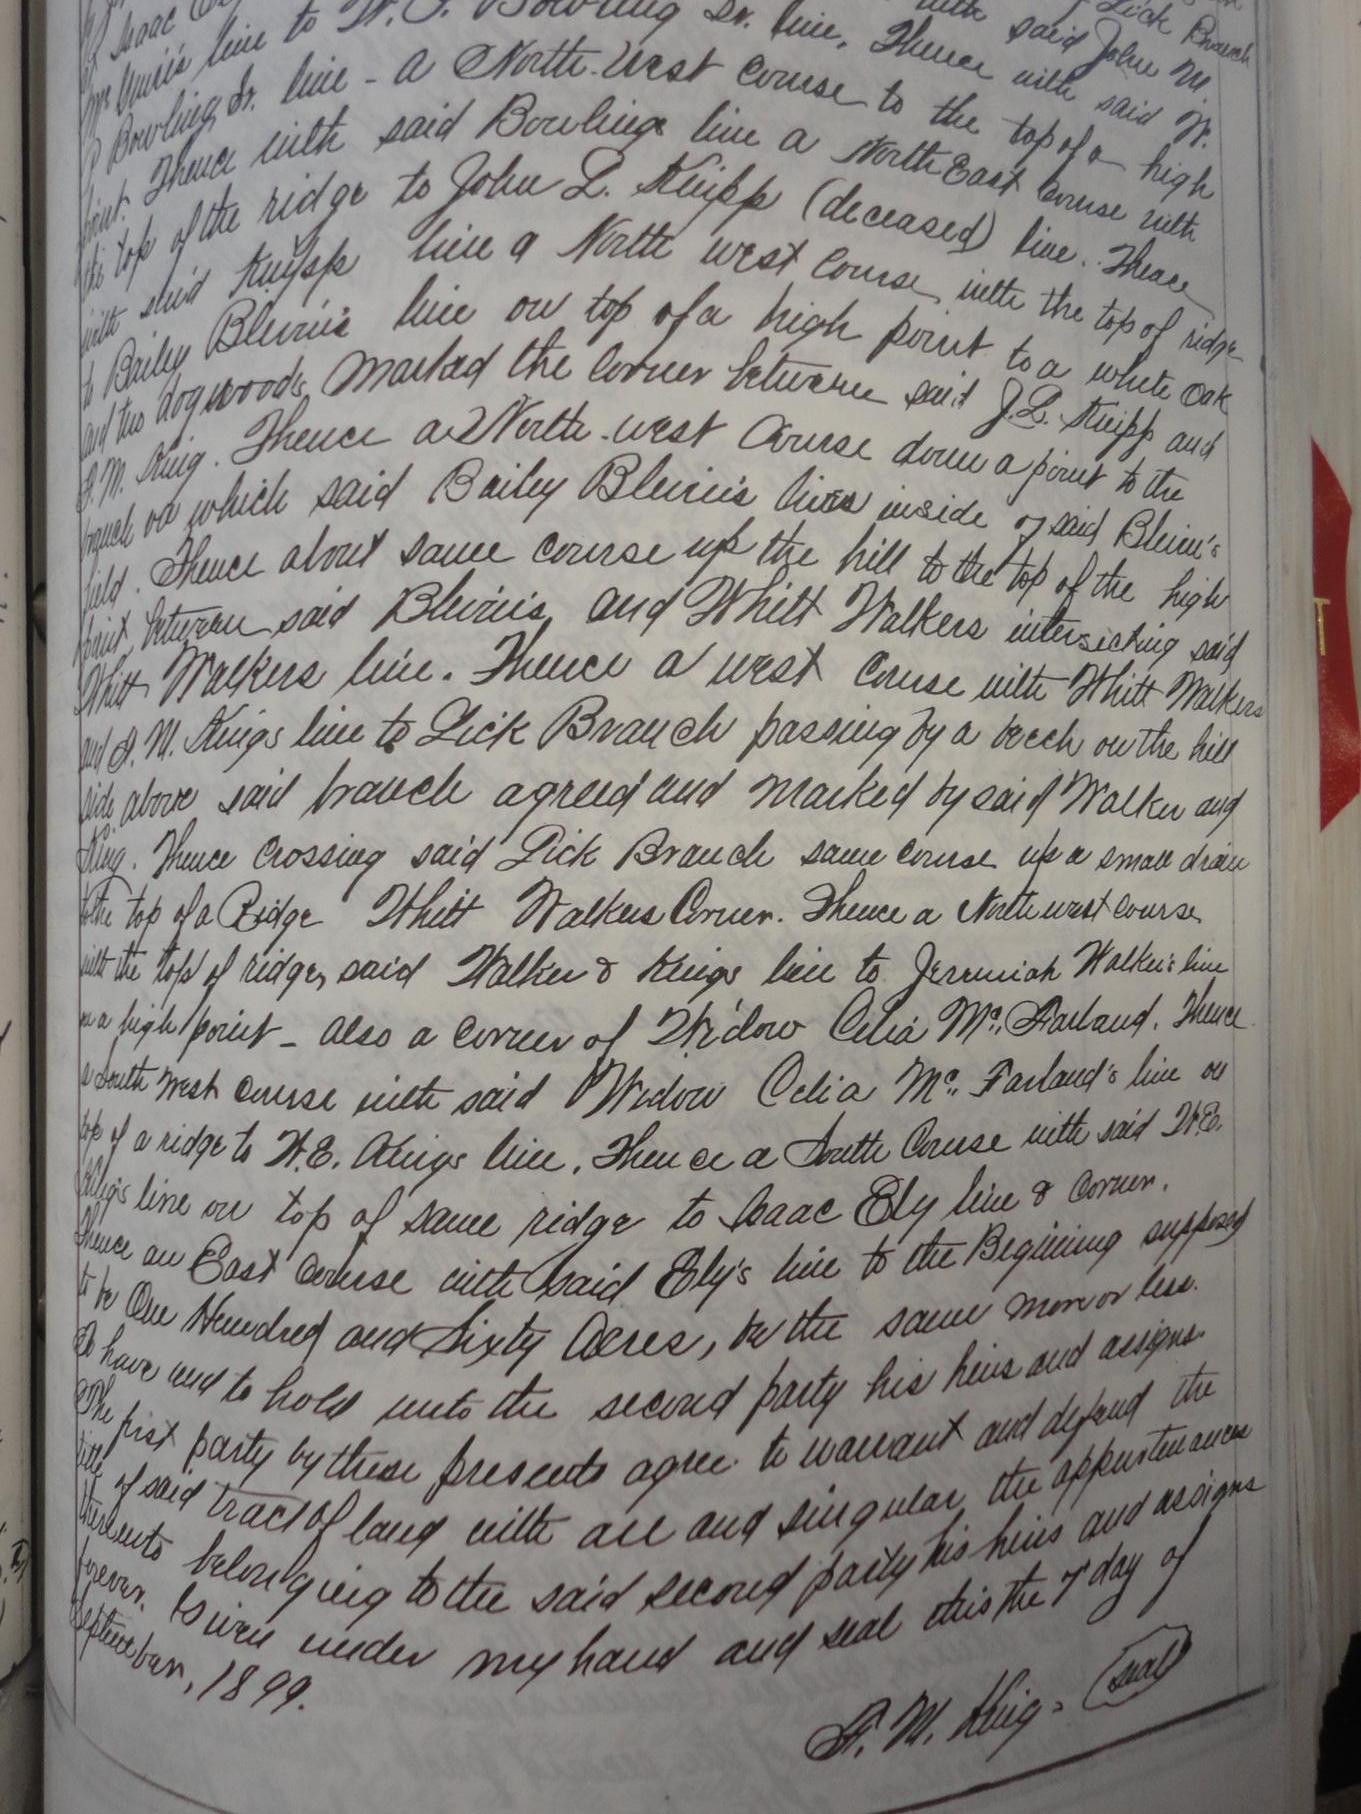 Lick Branch
of Isaac with said John M.
McGuire's line to W. P. Bowling Sr. line, Thence with said W.
P. Bowling Sr. line - a North-West Course to the top of a high
point. Thence with said Bowlings line a North East Course with
the top of the ridge to John L. Knipp (deceased) line. Thence
with said Knipp line a North west Course with the top of ridge
to Bailey Blevins line on top of a high point to a white Oak
and two dogwoods, Marked the Corner between said J.L. Knipp and
F. M. King. Thence a North-west Course down a point to the
branch on which said Bailey Blevins lives inside of said Blevin's
field. Thence about same course up the hill to the top of the high
point between said Blevins, and Whitt Walkers intersecting said
Whitt Walkers line. Thence a west course with Whitt Walkers
and F. M. Kings line to Lick Branch passing by a beech on the hill
side above said branch agreed and marked by said Walker and
King. Thence Crossing said Lick Branch same course up a small drain
to the top of a Ridge Whitt Walkers Corner. Thence a North west course
with the top of ridge, said Walker & Kings line to Jeremiah Walker's line
on a high point - also a corner of Widow Celia Mc. Farland. Thence
a South West Course with said Widow Celia Mc. Farland's line on
top of a ridge to W.E. Kings line. Thence a South Course with said W.E.
King's line on top of same ridge to Isaac Ely line & Corner.
Thence an East Course with said Ely's line to the Begining supposed
to be One Hundred and Sixty Acres, be the same more or less.
To have and to hold unto the second party his heirs and assigns.
The first party by these presents agree to warrant and defend the
title of said tract of land with all and singular the appurtenances
thereunto belonging to the said second party his heirs and assigns
forever. Given under my hand and seal this the 7th day of
September, 1899.
F. M. King - (seal)